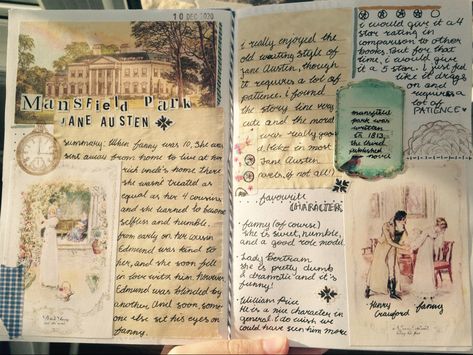 10 DEC 2020
Mansfield Park
JANE AUSTEN
summary: When fanny was 10, She was
sent away from home to live at her
rich uncle's home. There
she wasn't treated as
equal as her 4 cousins
and she learned to become
selfless and humble.
from early on her cousin
Edmund was kind to
her, and she soon fell
in love with him. however
Edmund was blinded by
another. And soon, some
one else set his eyes on
fanny.
i really enjoyed the
old writing style of
Jane Austen, though
it requires a lot of
patience. i found
the story line very
cute and the moral
was really good
(like in most
Jane Austen
books, if not all!)
favourite
CHARACTER;
- fanny (of course)
she is sweet, humble,
and a good role model.
- Lady Bertram
she is pretty dumb
& dramatic and it's
funny!
- William Price
He is a nice character in
general. I do wish we
could have seen him more
i would give it a 4
star rating in
comparison to other
books. But for that
time, i would give
it a 5 star. I just feel
like it drags
on and
requires a
lot of
PATIENCE
mansfield
park was
written
in 1813,
the third
published
novel
Henry
Crawford
fanny